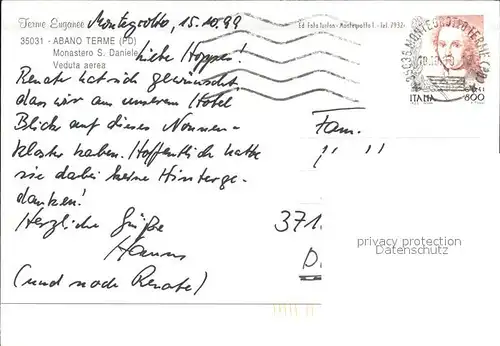 Terme Euganee
35031 - ABANO TERME (PD)
Monastero S. Daniele
Veduta aerea
Montegrotto, 15.10.99
Ed. Foto Isolan - Montegrotto T. - Tel.
Liebe Hoppes!
Renate hat sich gewünscht,
dass wir aus unserem Hotel
Blick auf dieses Nonnen-
kloster haben. Hoffentlich hatte
sie dabei keine Hinterge-
danken!
Herzliche Grüße
Hanns
(und noch Renate)
35036 MONTEGROTTO TERME (PD)
ITALIA
800
Fam.
371
D
privacy protection
Datenschutz